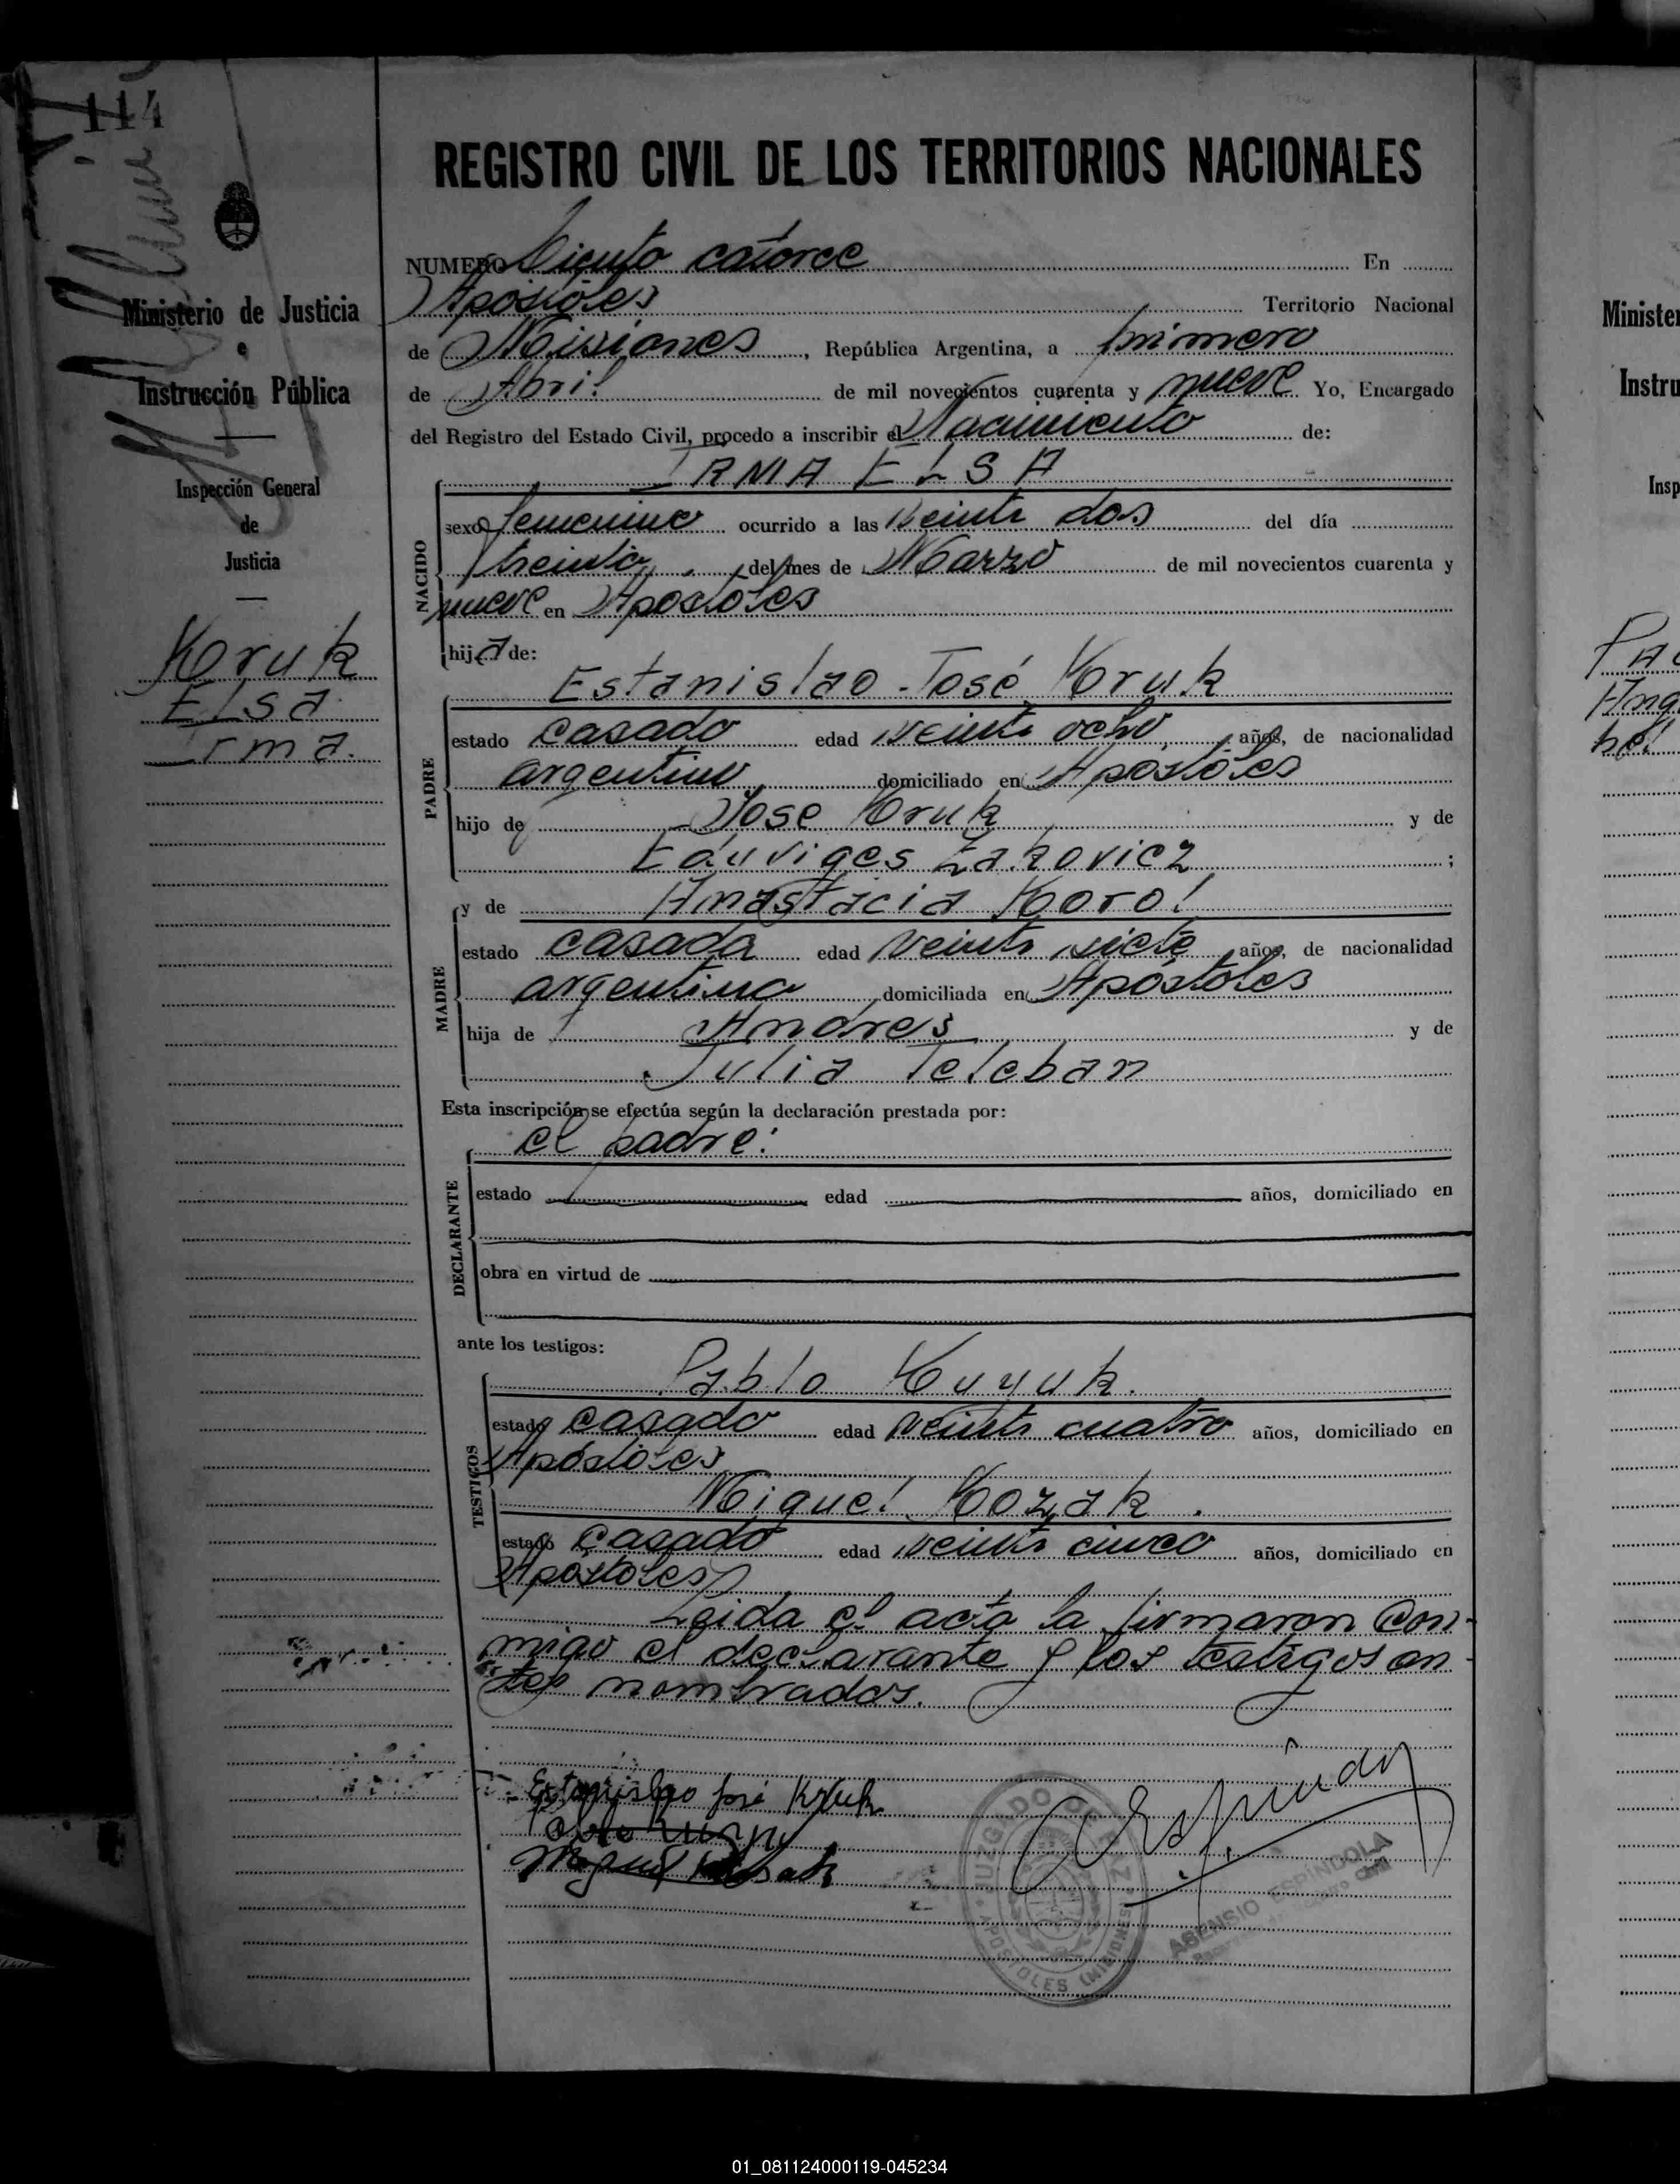 114
REGISTRO CIVIL DE LOS TERRITORIOS NACIONALES
Ministerio de Justicia
e
Instrucción Pública
Inspección General
de
Justicia
Koruk
Elsa
Irma.
NUMERO Ciento catorce En
Apóstoles Territorio Nacional
de Misiones, República Argentina, a primero
de Abril de mil novecientos cuarenta y nueve Yo, Encargado
del Registro del Estado Civil, procedo a inscribir el Nacimiento de:
IRMA ELSA
NACIDO
sexo femenino ocurrido a las veinte dos del día
treinta del mes de Marzo de mil novecientos cuarenta y
nueve en Apostoles
hija de:
Estanislao José Koruk
PADRE
estado casado edad veinte ocho, años, de nacionalidad
argentino domiciliado en Apostoles
hijo de Jose Koruk y de
Eduviges Zakovicz ;
y de Anastacia Korol
MADRE
estado casada edad veinte siete años, de nacionalidad
argentina domiciliada en Apóstoles
hija de Andres y de
Julia Teleban
Esta inscripción se efectúa según la declaración prestada por:
el padre:
DECLARANTE
estado edad años, domiciliado en
obra en virtud de
ante los testigos:
Pablo Kuyuk.
TESTIGOS
estado casado edad veinte cuatro años, domiciliado en
Apóstoles
Miguel Kozak.
estado casado edad veinte cinco años, domiciliado en
Apóstoles
Leida el acta la firmaron con-
migo el declarante y los testigos an-
tes nombrados.
Estanislao José Kruk
JUZGADO DE PAZ
APOSTOLES (MISIONES)
ASENSIO ESPÍNDOLA
Ministe
Instru
Insp
01_081124000119-045234